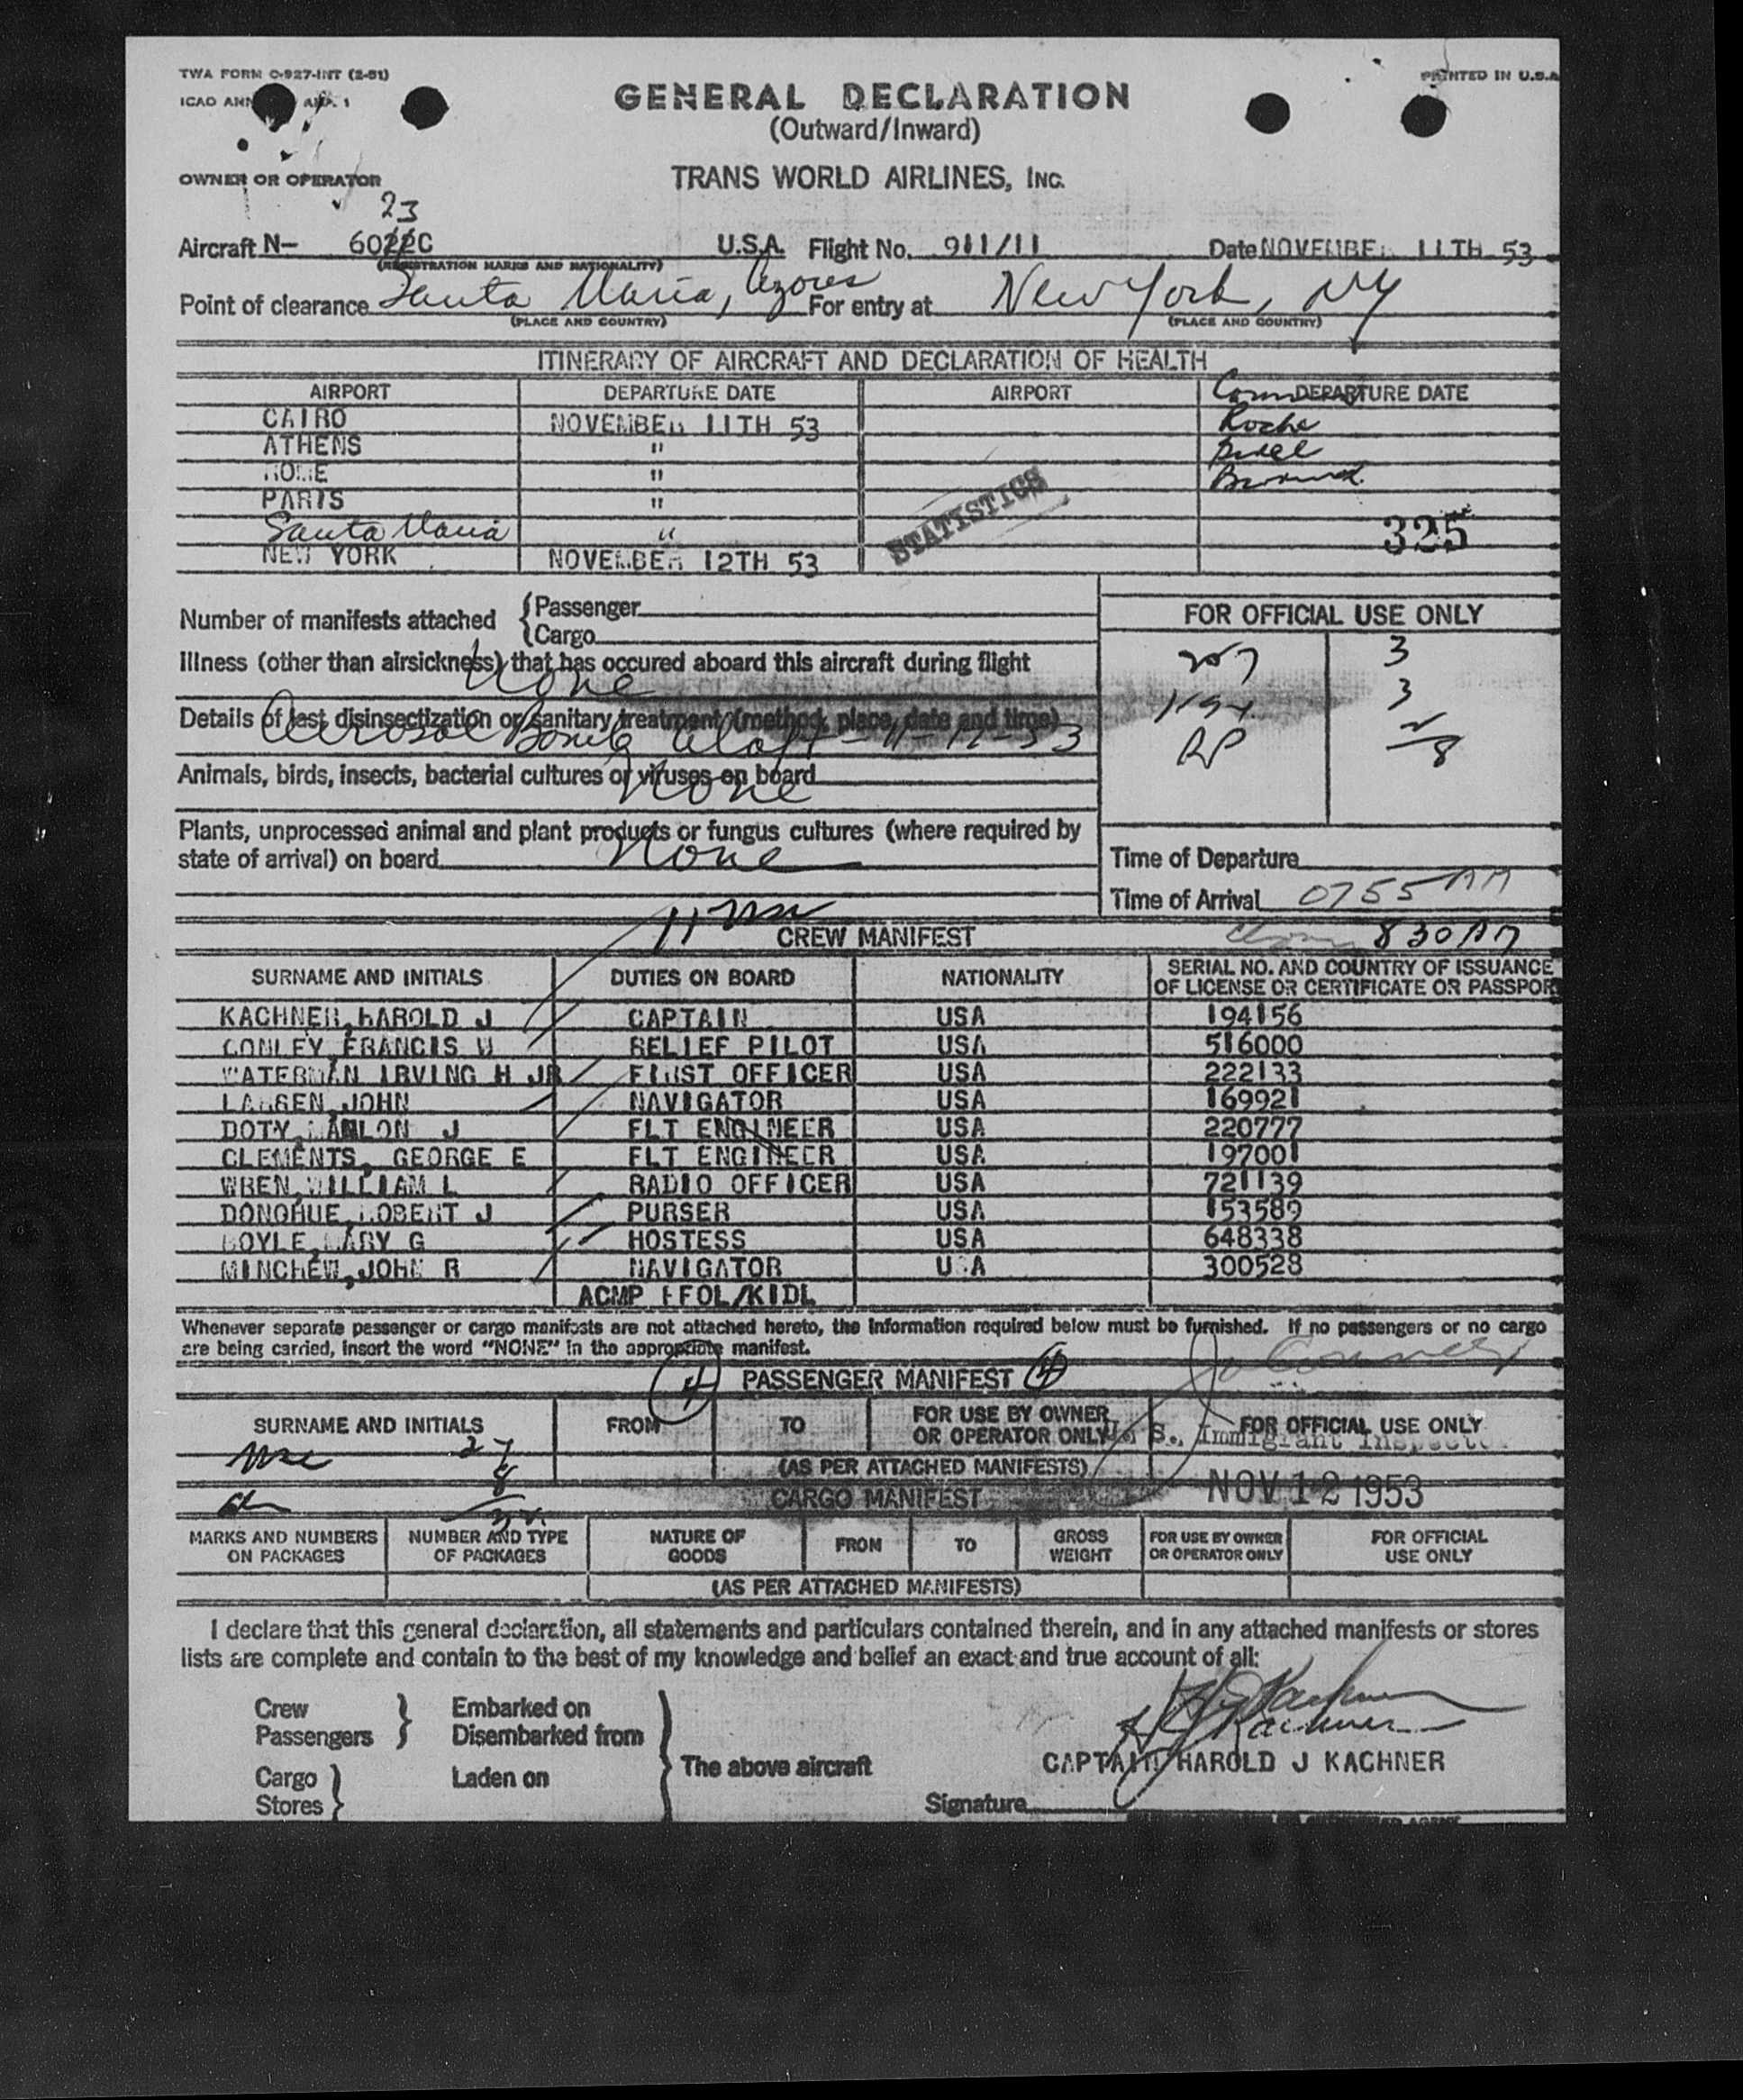 TWA FORM C-927-INT (2-51)
PRINTED IN U.S.A
ICAO ANN AP. 1
GENERAL DECLARATION
(Outward/Inward)
OWNER OR OPERATOR
TRANS WORLD AIRLINES, INC.
23
Aircraft N- 6022C U.S.A. Flight No. 911/11 Date NOVEMBER 11TH 53
(REGISTRATION MARKS AND NATIONALITY)
Point of clearance Santa Maria, Azores For entry at New York, NY
(PLACE AND COUNTRY) (PLACE AND COUNTRY)
ITINERARY OF AIRCRAFT AND DECLARATION OF HEALTH
AIRPORT DEPARTURE DATE AIRPORT DEPARTURE DATE
CAIRO NOVEMBER 11TH 53 Roche
ATHENS "
ROME "
PARIS "
STATISTICS
Santa Maria " 325
NEW YORK NOVEMBER 12TH 53
Number of manifests attached { Passenger
{ Cargo
FOR OFFICIAL USE ONLY
Illness (other than airsickness) that has occured aboard this aircraft during flight
None
207 3
3
Details of last disinsectization or sanitary treatment (method, place, date and time)
Aerosol Bomb Aloft - 11-12-53
8
Animals, birds, insects, bacterial cultures or viruses on board
None
Plants, unprocessed animal and plant products or fungus cultures (where required by
state of arrival) on board None
Time of Departure
Time of Arrival 0755 AM
830 AM
CREW MANIFEST
SURNAME AND INITIALS DUTIES ON BOARD NATIONALITY SERIAL NO. AND COUNTRY OF ISSUANCE
OF LICENSE OR CERTIFICATE OR PASSPOR
KACHNER, HAROLD J CAPTAIN USA 194156
CONLEY, FRANCIS W RELIEF PILOT USA 516000
WATERMAN IRVING H JR FIRST OFFICER USA 222133
LARSEN, JOHN NAVIGATOR USA 169921
DOTY, J FLT ENGINEER USA 220777
CLEMENTS, GEORGE E FLT ENGINEER USA 197001
WREN, WILLIAM L RADIO OFFICER USA 721139
DONOHUE, ROBERT J PURSER USA 153589
BOYLE, MARY G HOSTESS USA 648338
MINCHEW, JOHN R NAVIGATOR USA 300528
Whenever separate passenger or cargo manifests are not attached hereto, the information required below must be furnished. If no passengers or no cargo
are being carried, insert the word "NONE" in the appropriate manifest.
4 PASSENGER MANIFEST 4
SURNAME AND INITIALS FROM TO FOR USE BY OWNER
OR OPERATOR ONLY FOR OFFICIAL USE ONLY
U. S., Immigrant Inspector
27
8
(AS PER ATTACHED MANIFESTS)
NOV 12 1953
CARGO MANIFEST
MARKS AND NUMBERS
ON PACKAGES NUMBER AND TYPE
OF PACKAGES NATURE OF
GOODS FROM TO GROSS
WEIGHT FOR USE BY OWNER
OR OPERATOR ONLY FOR OFFICIAL
USE ONLY
(AS PER ATTACHED MANIFESTS)
I declare that this general declaration, all statements and particulars contained therein, and in any attached manifests or stores
lists are complete and contain to the best of my knowledge and belief an exact and true account of all:
Crew
Passengers } Embarked on
Disembarked from
HJ Kachner
HJ Kachner
Cargo
Stores } Laden on
} The above aircraft
CAPTAIN HAROLD J KACHNER
Signature